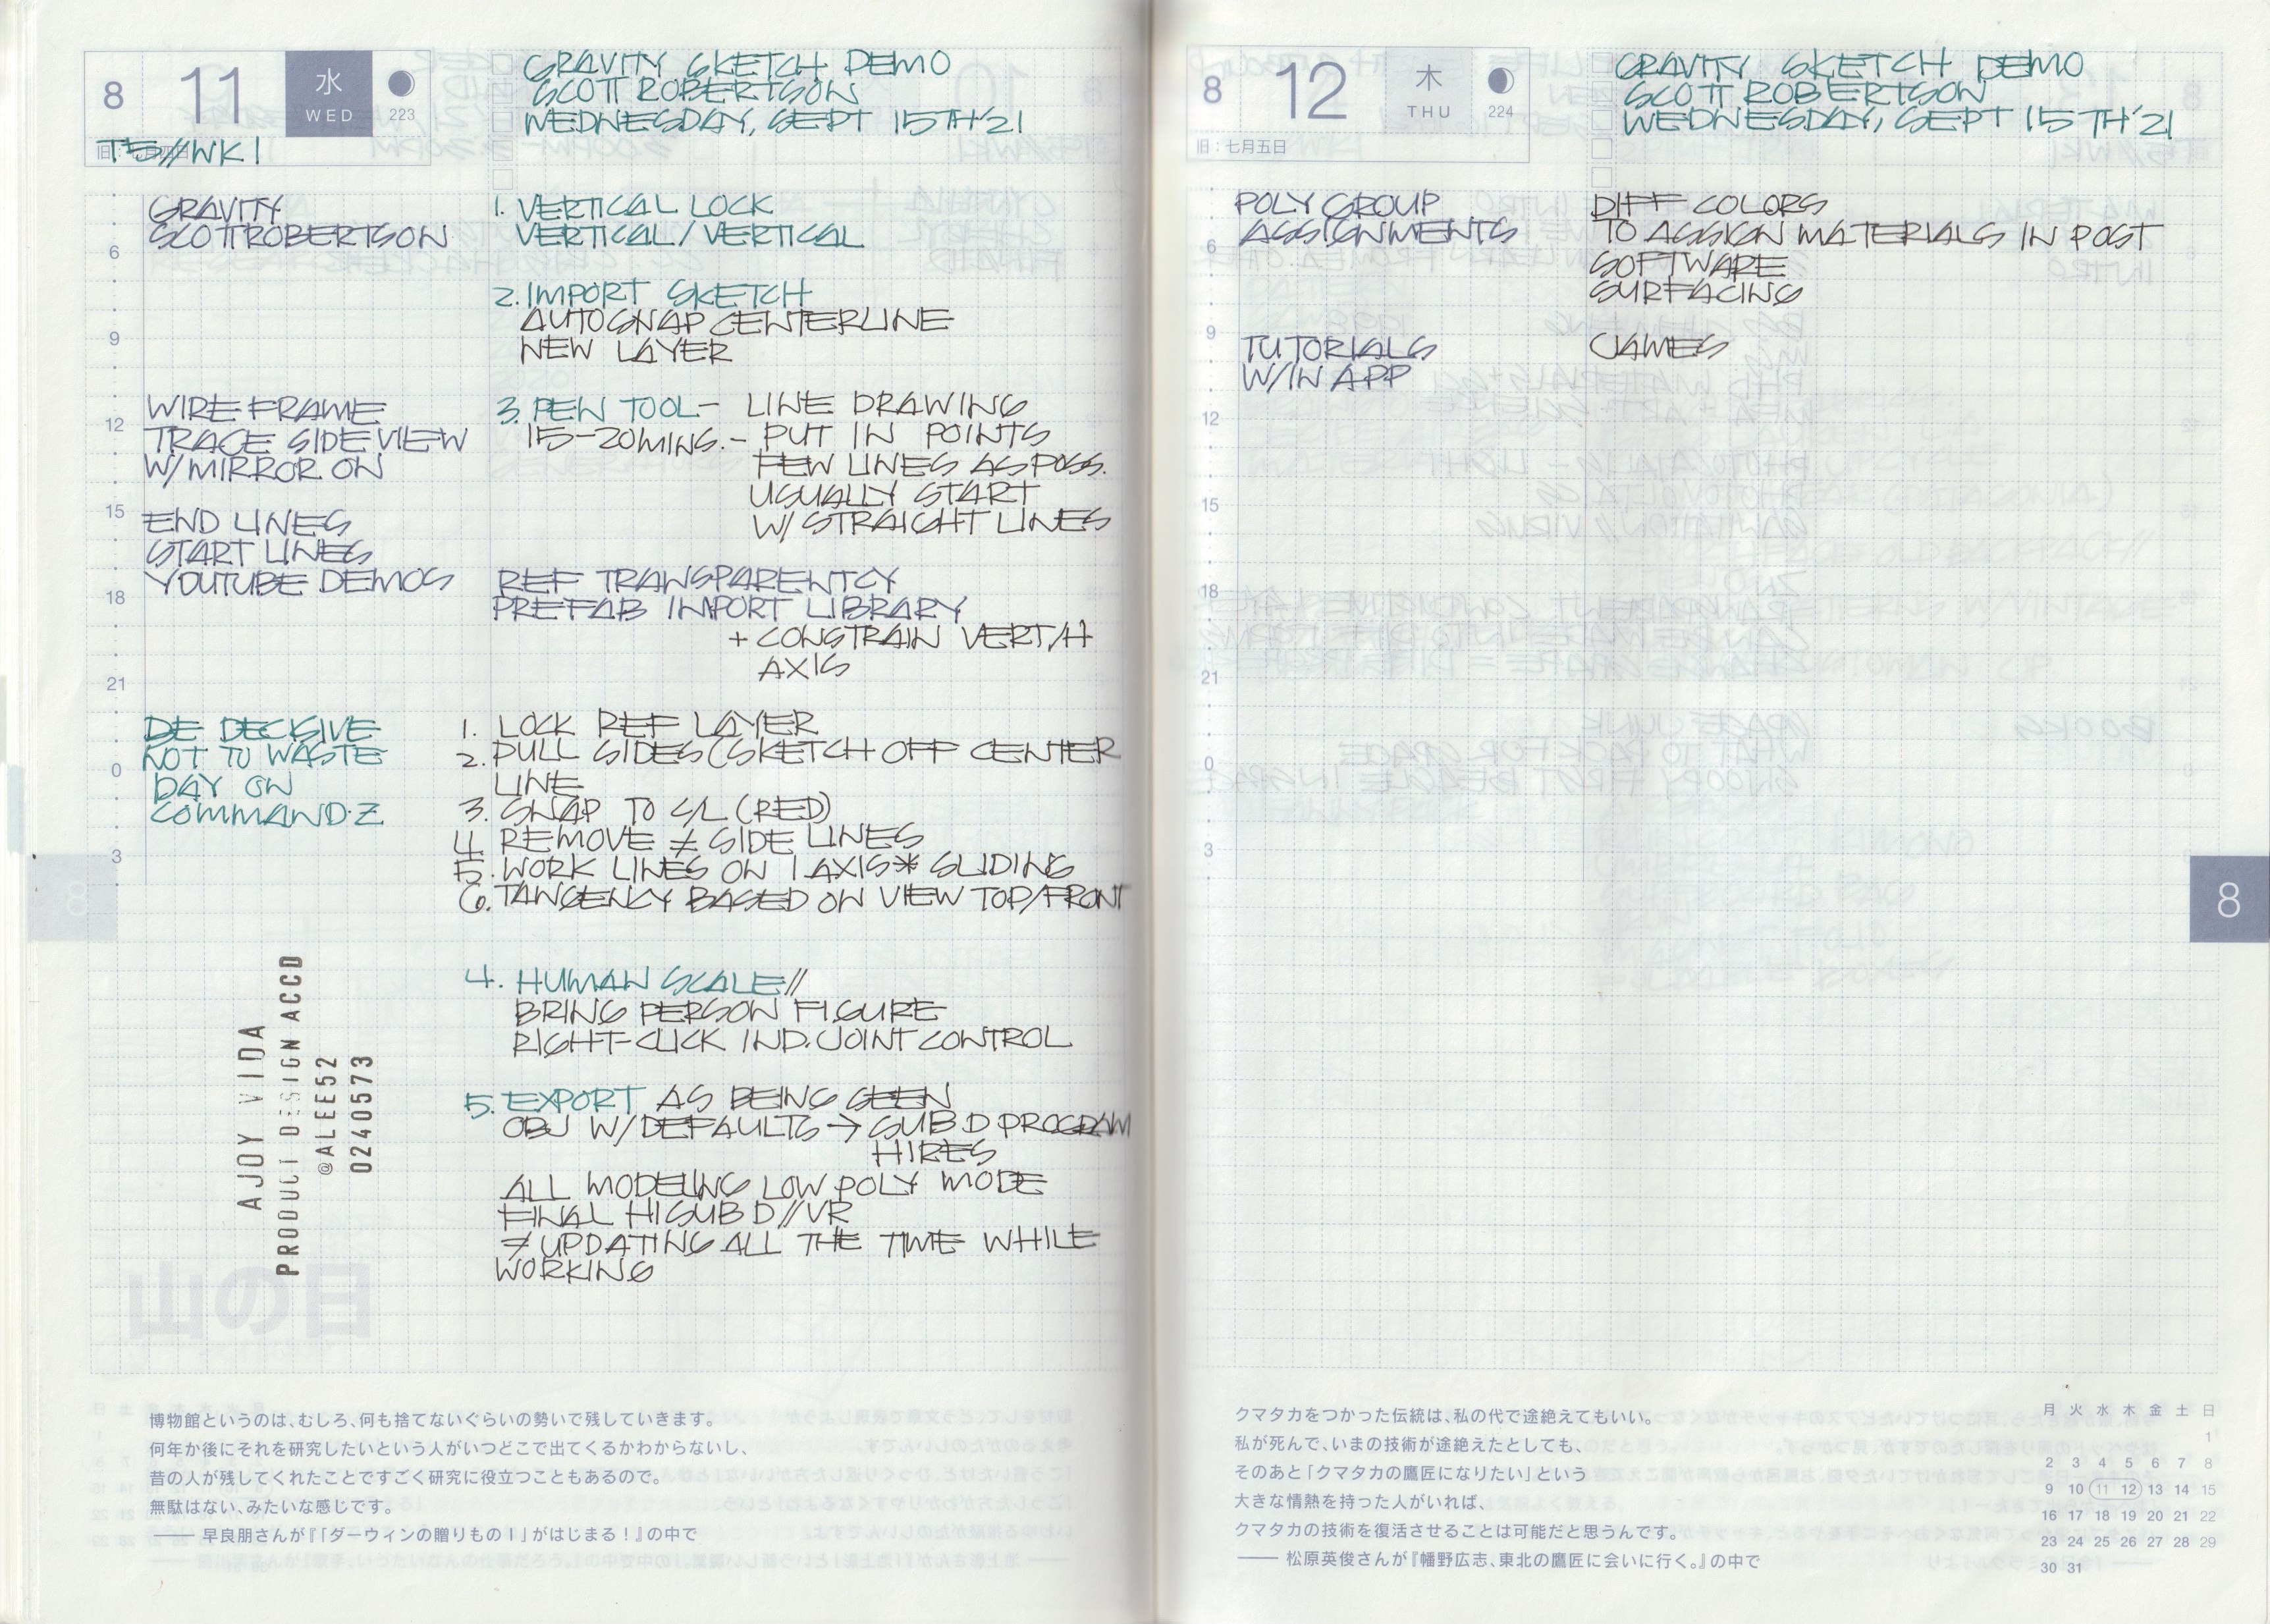 8 11 水 WED 223
T5//WK1
GRAVITY SKETCH DEMO
SCOTT ROBERTSON
WEDNESDAY, SEPT 15TH '21
GRAVITY
SCOTT ROBERTSON
1. VERTICAL LOCK
VERTICAL/VERTICAL
2. IMPORT SKETCH
AUTOSNAP CENTERLINE
NEW LAYER
WIRE FRAME
TRACE SIDEVIEW
W/MIRROR ON
3. PEN TOOL- LINE DRAWING
15-20MINS.- PUT IN POINTS
FEW LINES AS POSS.
USUALLY START
W/ STRAIGHT LINES
END LINES
START LINES
YOUTUBE DEMOS
REF TRANSPARENTCY
PREFAB IMPORT LIBRARY
+ CONSTRAIN VERT/H
AXIS
BE DECISIVE
NOT TO WASTE
DAY ON
COMMAND-Z
1. LOCK REF LAYER
2. PULL SIDES (SKETCH OFF CENTER
LINE
3. SNAP TO C/L (RED)
4. REMOVE ≠ SIDE LINES
5. WORK LINES ON 1 AXIS* SLIDING
6. TANGENCY BASED ON VIEW TOP/FRONT
4. HUMAN SCALE//
BRING PERSON FIGURE
RIGHT-CLICK IND. JOINT CONTROL
5. EXPORT AS BEING SEEN
OBJ W/DEFAULTS → SUB D PROGRAM
HIRES
ALL MODELING LOW POLY MODE
FINAL HI SUB D//VR
≠ UPDATING ALL THE TIME WHILE
WORKING
6
9
12
15
18
21
0
3
8
AJOY VIDA
PRODUCT DESIGN ACCD
@ALEE52
0240573
山の日
博物館というのは、むしろ、何も捨てないぐらいの勢いで残していきます。
何年か後にそれを研究したいという人がいつどこで出てくるかわからないし、
昔の人が残してくれたことですごく研究に役立つこともあるので。
無駄はない、みたいな感じです。
―― 早良朋さんが『「ダーウィンの贈りもの I 」がはじまる!』の中で
8 12 木 THU 224
旧:七月五日
GRAVITY SKETCH DEMO
SCOTT ROBERTSON
WEDNESDAY, SEPT 15TH '21
POLY GROUP
ASSIGNMENTS
DIFF COLORS
TO ASSIGN MATERIALS IN POST
SOFTWARE
SURFACING
TUTORIALS
W/IN APP
JAMES
6
9
12
15
18
21
0
3
8
クマタカをつかった伝統は、私の代で途絶えてもいい。
私が死んで、いまの技術が途絶えたとしても、
そのあと「クマタカの鷹匠になりたい」という
大きな情熱を持った人がいれば、
クマタカの技術を復活させることは可能だと思うんです。
―― 松原英俊さんが『幡野広志、東北の鷹匠に会いに行く。』の中で
月 火 水 木 金 土 日
1
2 3 4 5 6 7 8
9 10 11 12 13 14 15
16 17 18 19 20 21 22
23 24 25 26 27 28 29
30 31